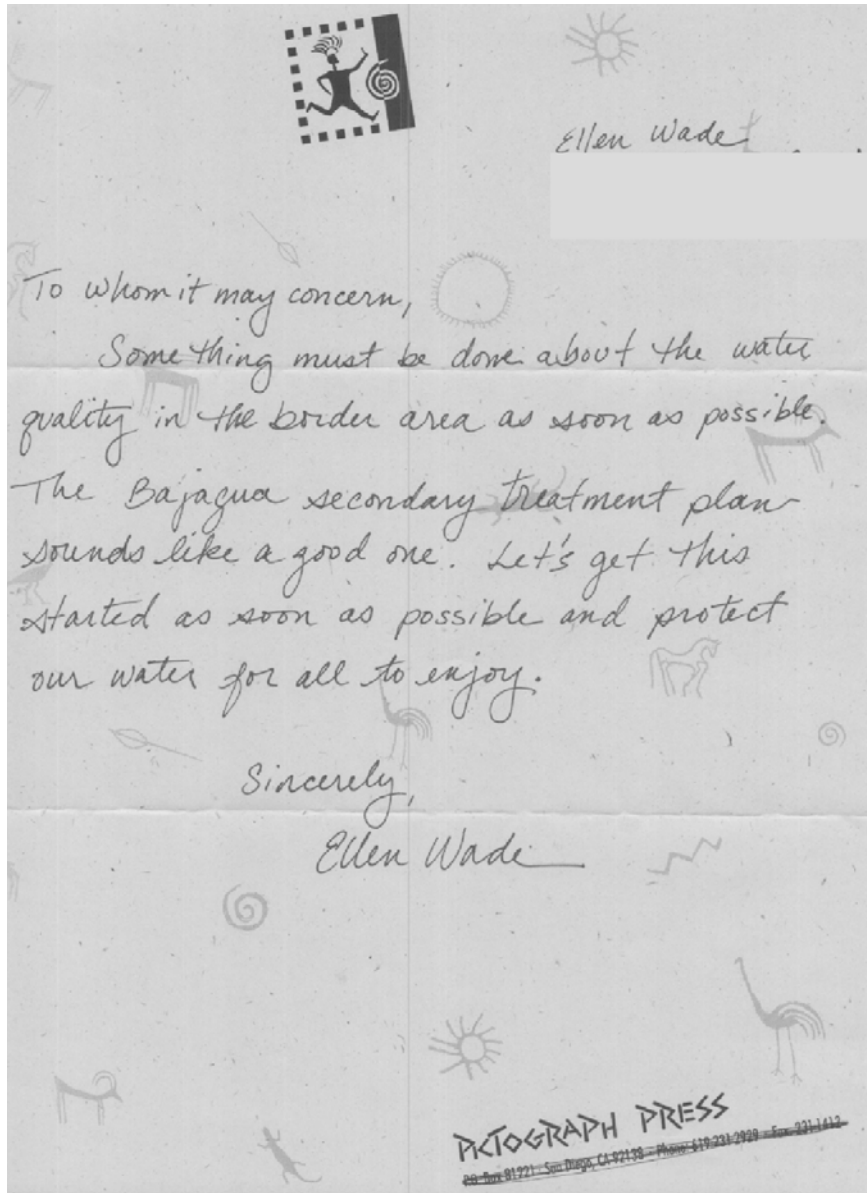 Ellen Wade
To whom it may concern,
Something must be done about the water
quality in the border area as soon as possible.
The Bajagua secondary treatment plan
sounds like a good one. Let's get this
started as soon as possible and protect
our water for all to enjoy.
Sincerely,
Ellen Wade
PICTOGRAPH PRESS
P.O. Box 81221 - San Diego, CA 92138 - Phone: 619-231-2929 - Fax: 231-1412